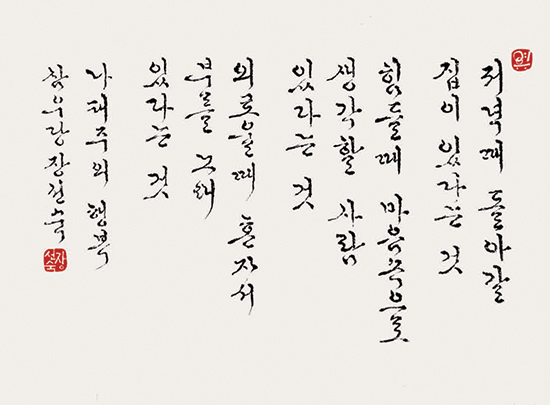 저녁때 돌아갈
집이 있다는 것
힘들때 마음속으로
생각할 사람
있다는 것
외로울때 혼자서
부를 노래
있다는 것
나태주의 행복
참우랑 장선숙